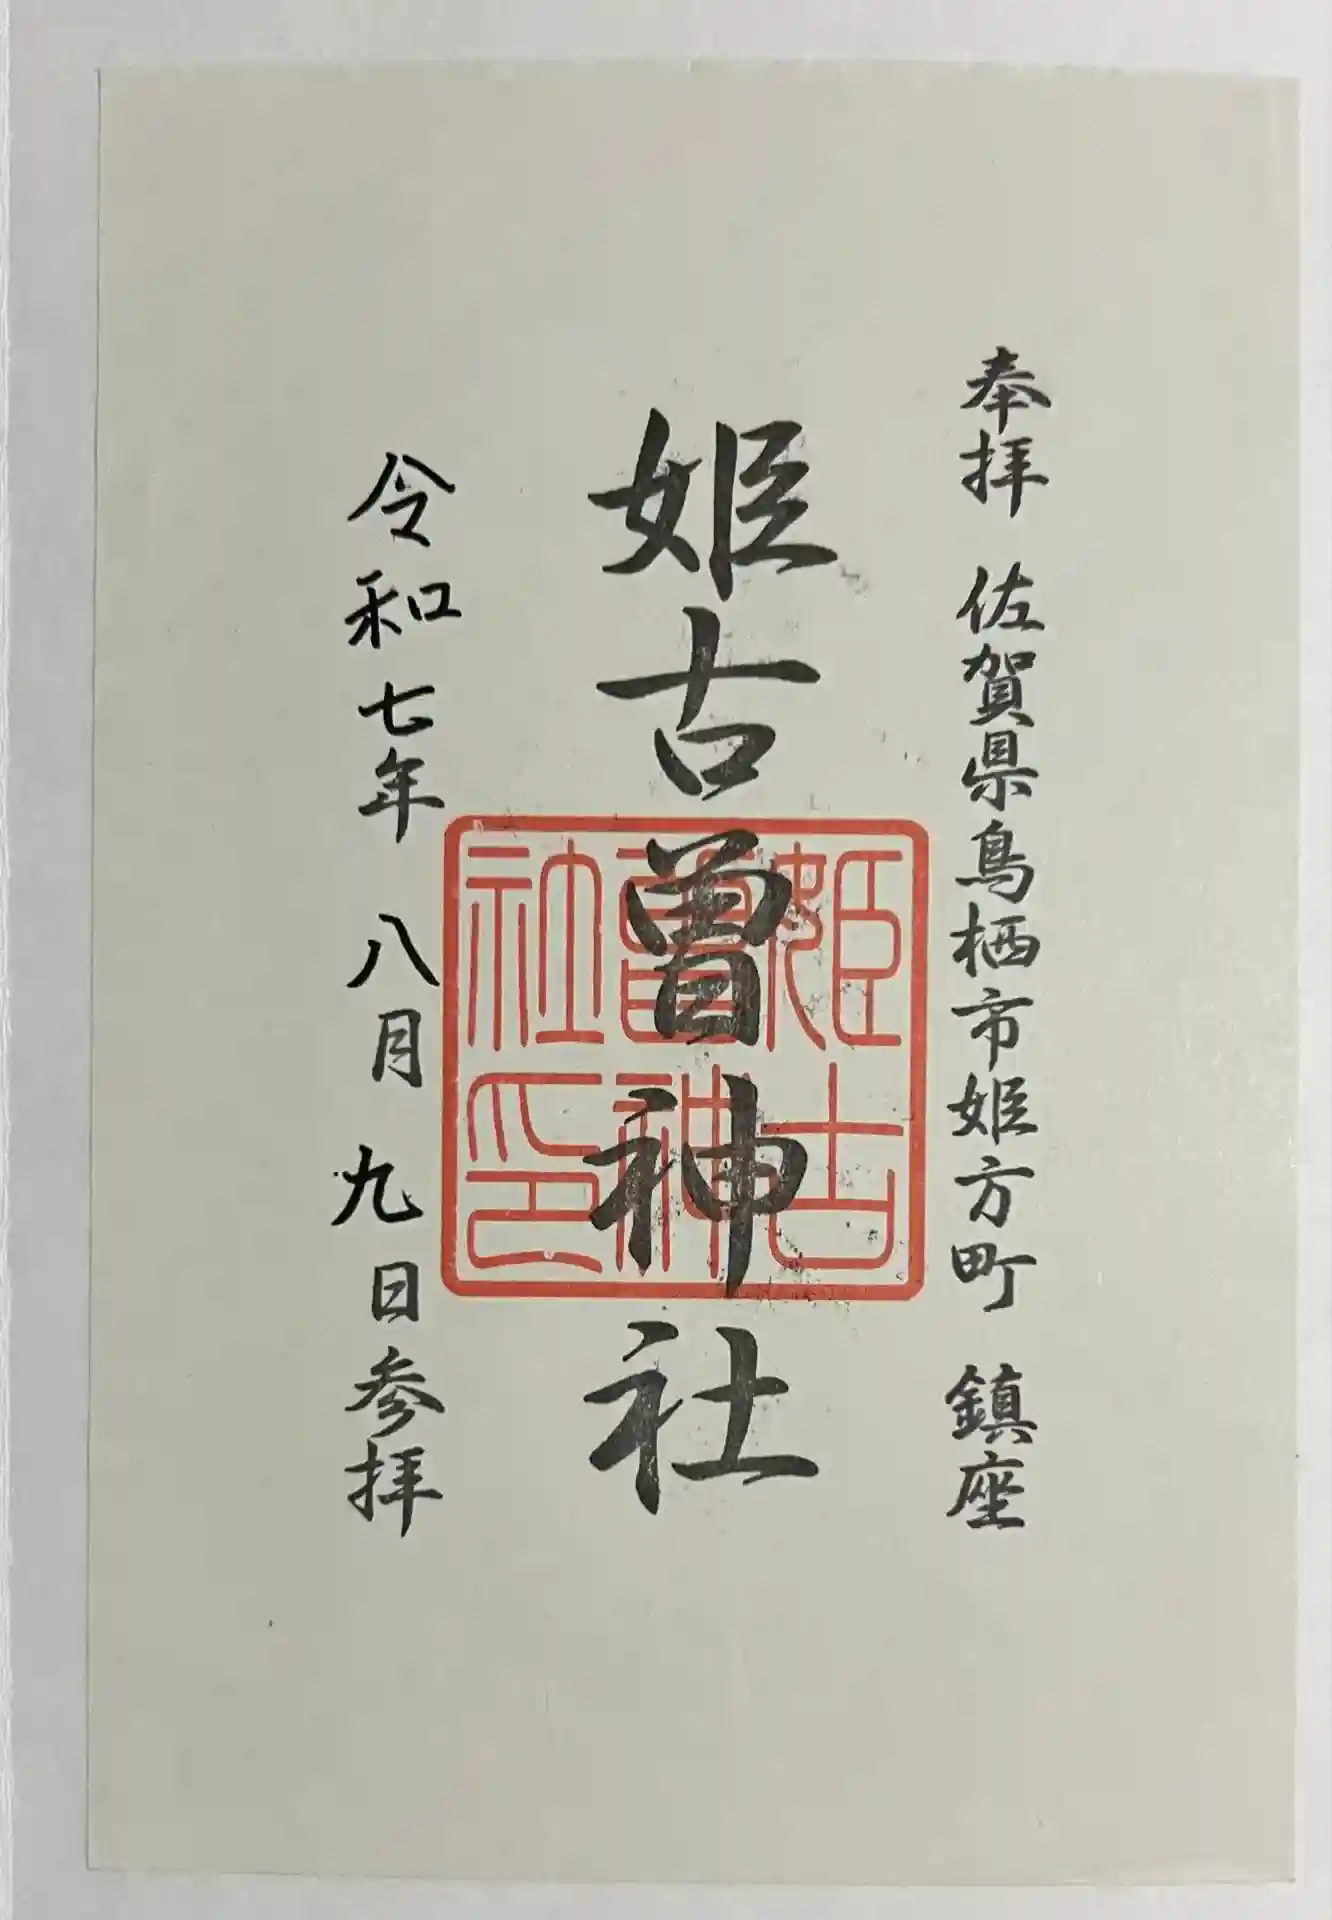 奉拝 佐賀県鳥栖市姫方町 鎮座
姫古曽神社
姫古曽神社印
令和七年 八月 九日参拝